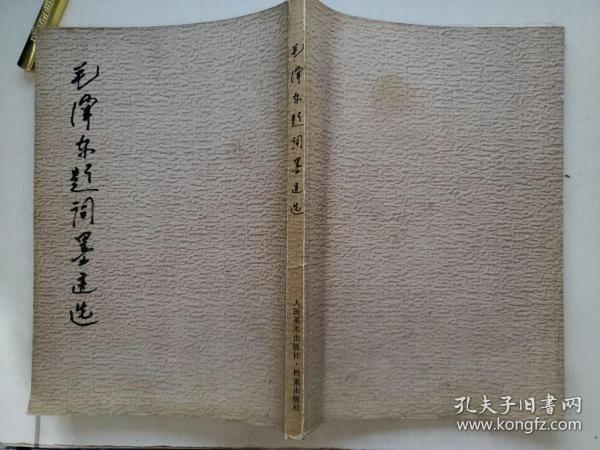 毛泽东题词墨迹选
毛泽东题词墨迹选
人民美术出版社·档案出版社
孔夫子旧书网
www.kongfz.com